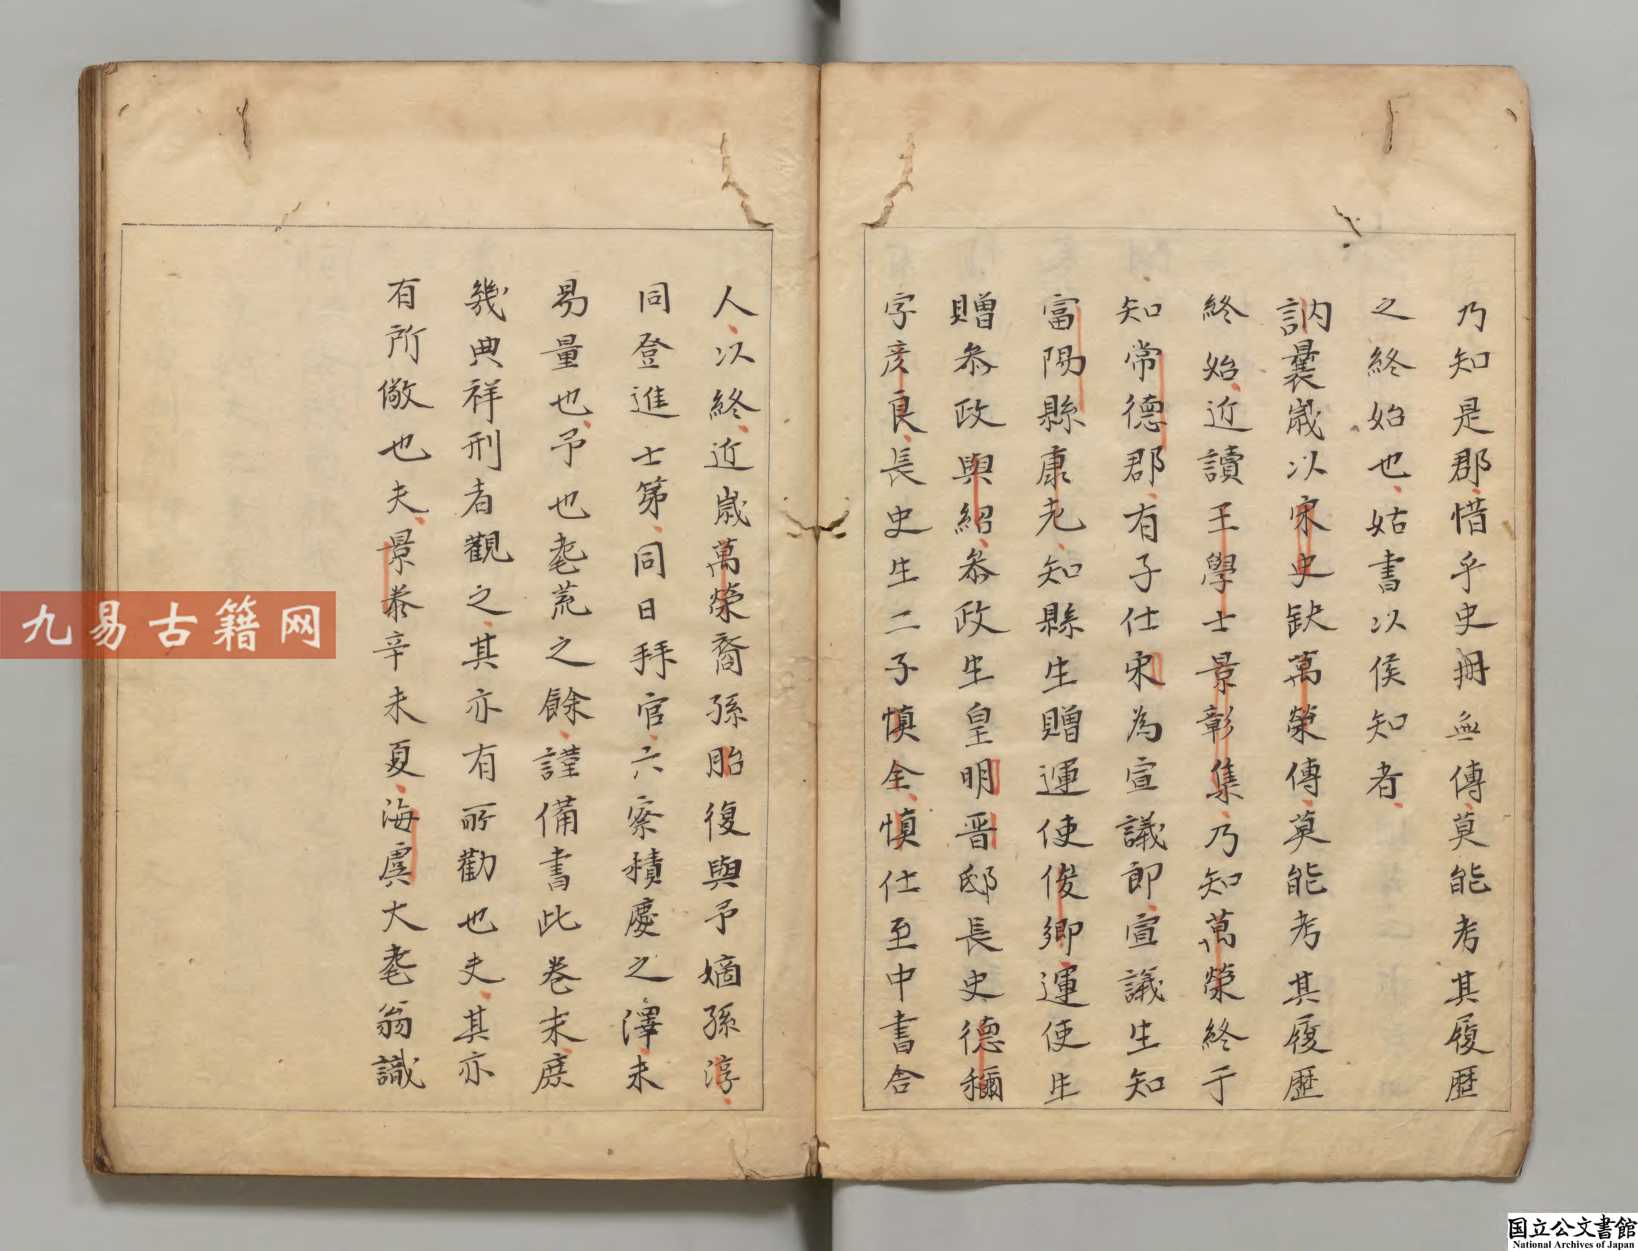 乃知是郡惜乎史册無傳莫能考其履歷
之終始也姑書以俟知者
訥曩歲以宋史缺萬榮傳莫能考其履歷
終始近讀王學士景彰集乃知萬榮終于
知常德郡有子仕宋為宣議郎宣議生知
富陽縣康尢知縣生贈運使俊卿運使生
贈叅政與紹叅政生皇明晋邸長史德稱
字彦良長史生二子慎全慎仕至中書舍
人以終近歲萬榮裔孫胎復與予嫡孫淳
同登進士第同日拜官六察積慶之澤未
易量也予也耄荒之餘謹備書此卷末庶
幾典祥刑者觀之其亦有所勸也夫其亦
有所儆也夫景泰辛未夏海虞大耄翁識
九易古籍网
国立公文書館
National Archives of Japan